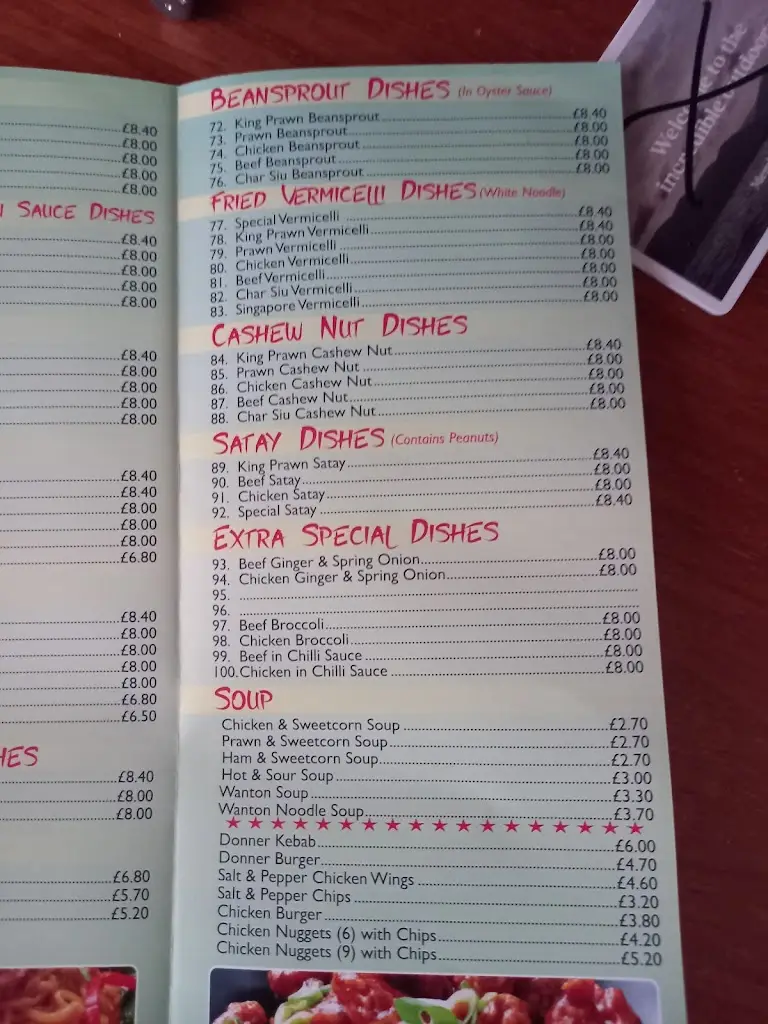 £8.40
£8.00
£8.00
£8.00
£8.00
SAUCE DISHES
£8.40
£8.00
£8.00
£8.00
£8.00
£8.40
£8.00
£8.00
£8.00
£8.00
£8.40
£8.40
£8.00
£8.00
£8.00
£6.80
£8.40
£8.00
£8.00
£8.00
£8.00
£6.80
£6.50
HES
£8.40
£8.00
£8.00
£6.80
£5.70
£5.20
BEANSPROUT DISHES (In Oyster Sauce)
72. King Prawn Beansprout £8.40
73. Prawn Beansprout £8.00
74. Chicken Beansprout £8.00
75. Beef Beansprout £8.00
76. Char Siu Beansprout £8.00
FRIED VERMICELLI DISHES (White Noodle)
77. Special Vermicelli £8.40
78. King Prawn Vermicelli £8.40
79. Prawn Vermicelli £8.00
80. Chicken Vermicelli £8.00
81. Beef Vermicelli £8.00
82. Char Siu Vermicelli £8.00
83. Singapore Vermicelli £8.00
CASHEW NUT DISHES
84. King Prawn Cashew Nut £8.40
85. Prawn Cashew Nut £8.00
86. Chicken Cashew Nut £8.00
87. Beef Cashew Nut £8.00
88. Char Siu Cashew Nut £8.00
SATAY DISHES (Contains Peanuts)
89. King Prawn Satay £8.40
90. Beef Satay £8.00
91. Chicken Satay £8.00
92. Special Satay £8.40
EXTRA SPECIAL DISHES
93. Beef Ginger & Spring Onion £8.00
94. Chicken Ginger & Spring Onion £8.00
95.
96.
97. Beef Broccoli £8.00
98. Chicken Broccoli £8.00
99. Beef in Chilli Sauce £8.00
100. Chicken in Chilli Sauce £8.00
SOUP
Chicken & Sweetcorn Soup £2.70
Prawn & Sweetcorn Soup £2.70
Ham & Sweetcorn Soup £2.70
Hot & Sour Soup £3.00
Wanton Soup £3.30
Wanton Noodle Soup £3.70
Donner Kebab £6.00
Donner Burger £4.70
Salt & Pepper Chicken Wings £4.60
Salt & Pepper Chips £3.20
Chicken Burger £3.80
Chicken Nuggets (6) with Chips £4.20
Chicken Nuggets (9) with Chips £5.20
Welcome to the
incredible outdoor